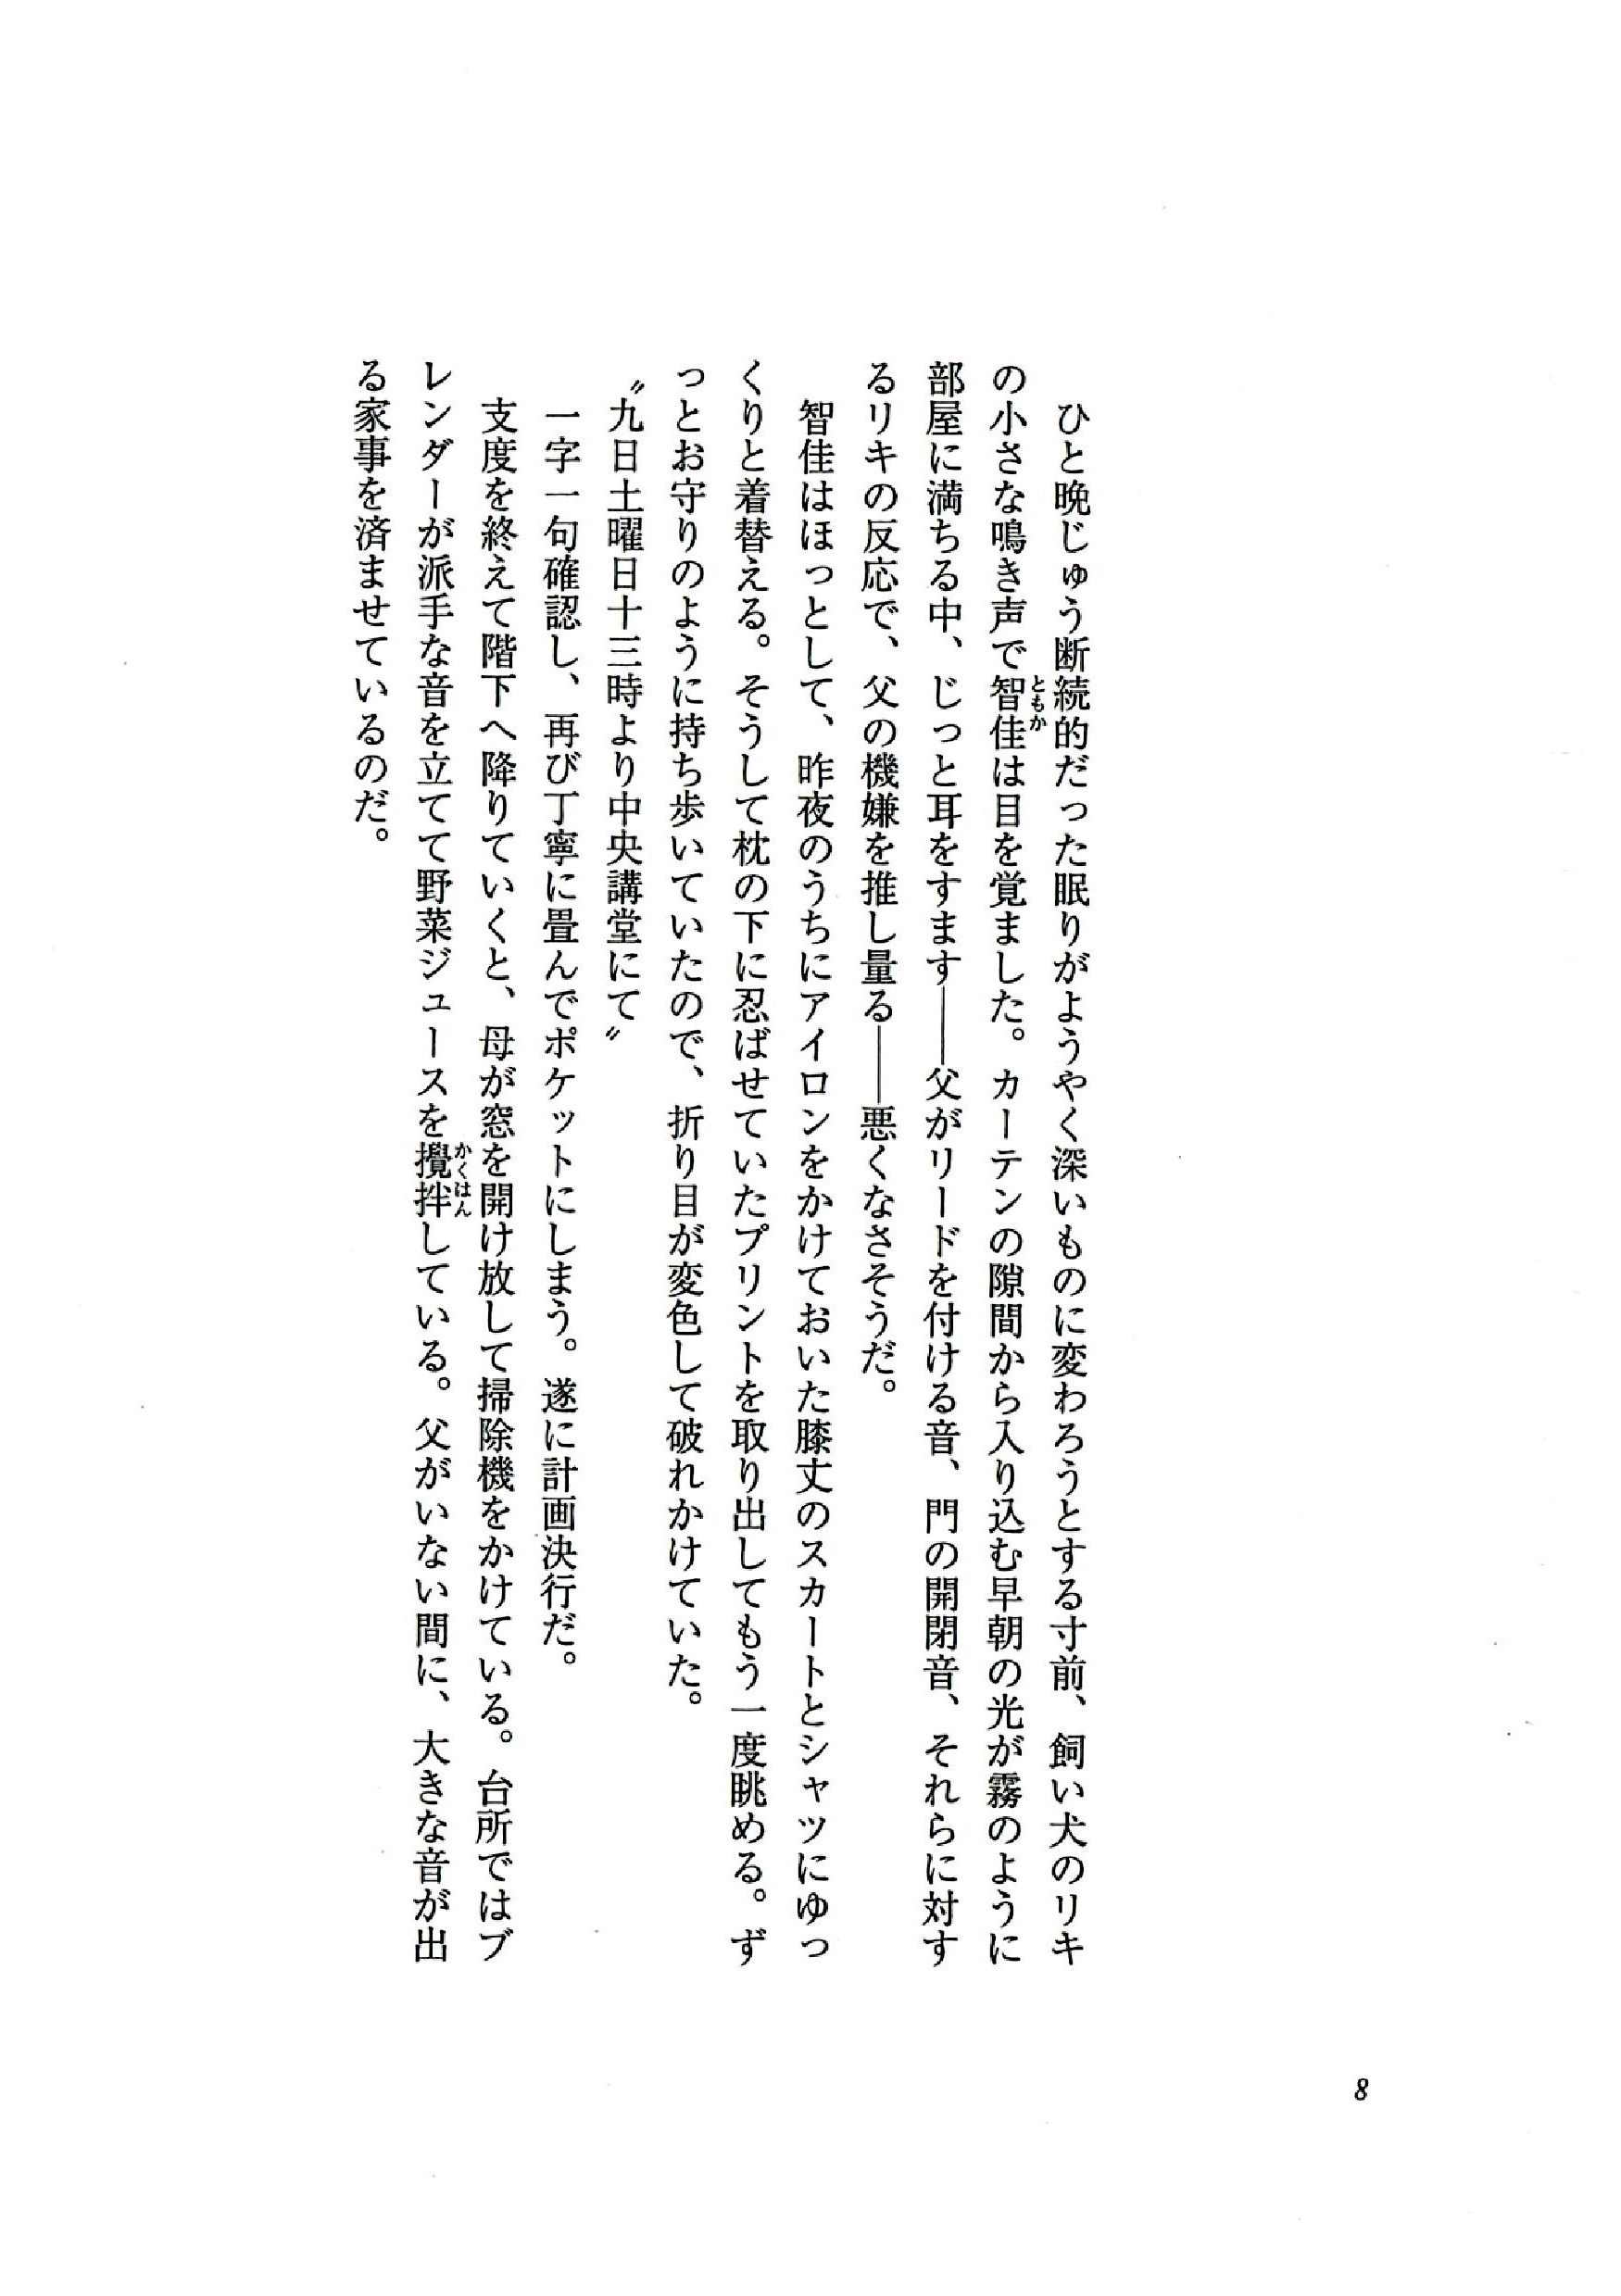 ひと晩じゅう断続的だった眠りがようやく深いものに変わろうとする寸前、飼い犬のリキ
の小さな鳴き声で智佳は目を覚ました。カーテンの隙間から入り込む早朝の光が霧のように
ともか
部屋に満ちる中、じっと耳をすます――父がリードを付ける音、門の開閉音、それらに対す
るリキの反応で、父の機嫌を推し量る――悪くなさそうだ。
智佳はほっとして、昨夜のうちにアイロンをかけておいた膝丈のスカートとシャツにゆっ
くりと着替える。そうして枕の下に忍ばせていたプリントを取り出してもう一度眺める。ず
っとお守りのように持ち歩いていたので、折り目が変色して破れかけていた。
〝九日土曜日十三時より中央講堂にて〟
一字一句確認し、再び丁寧に畳んでポケットにしまう。遂に計画決行だ。
支度を終えて階下へ降りていくと、母が窓を開け放して掃除機をかけている。台所ではブ
レンダーが派手な音を立てて野菜ジュースを攪拌している。父がいない間に、大きな音が出
かくはん
る家事を済ませているのだ。
8